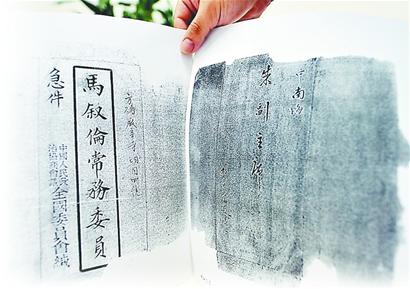 中南海
朱副主席
馬叙倫常務委員
急件
中國人民政
治協商會議
全國委員會緘